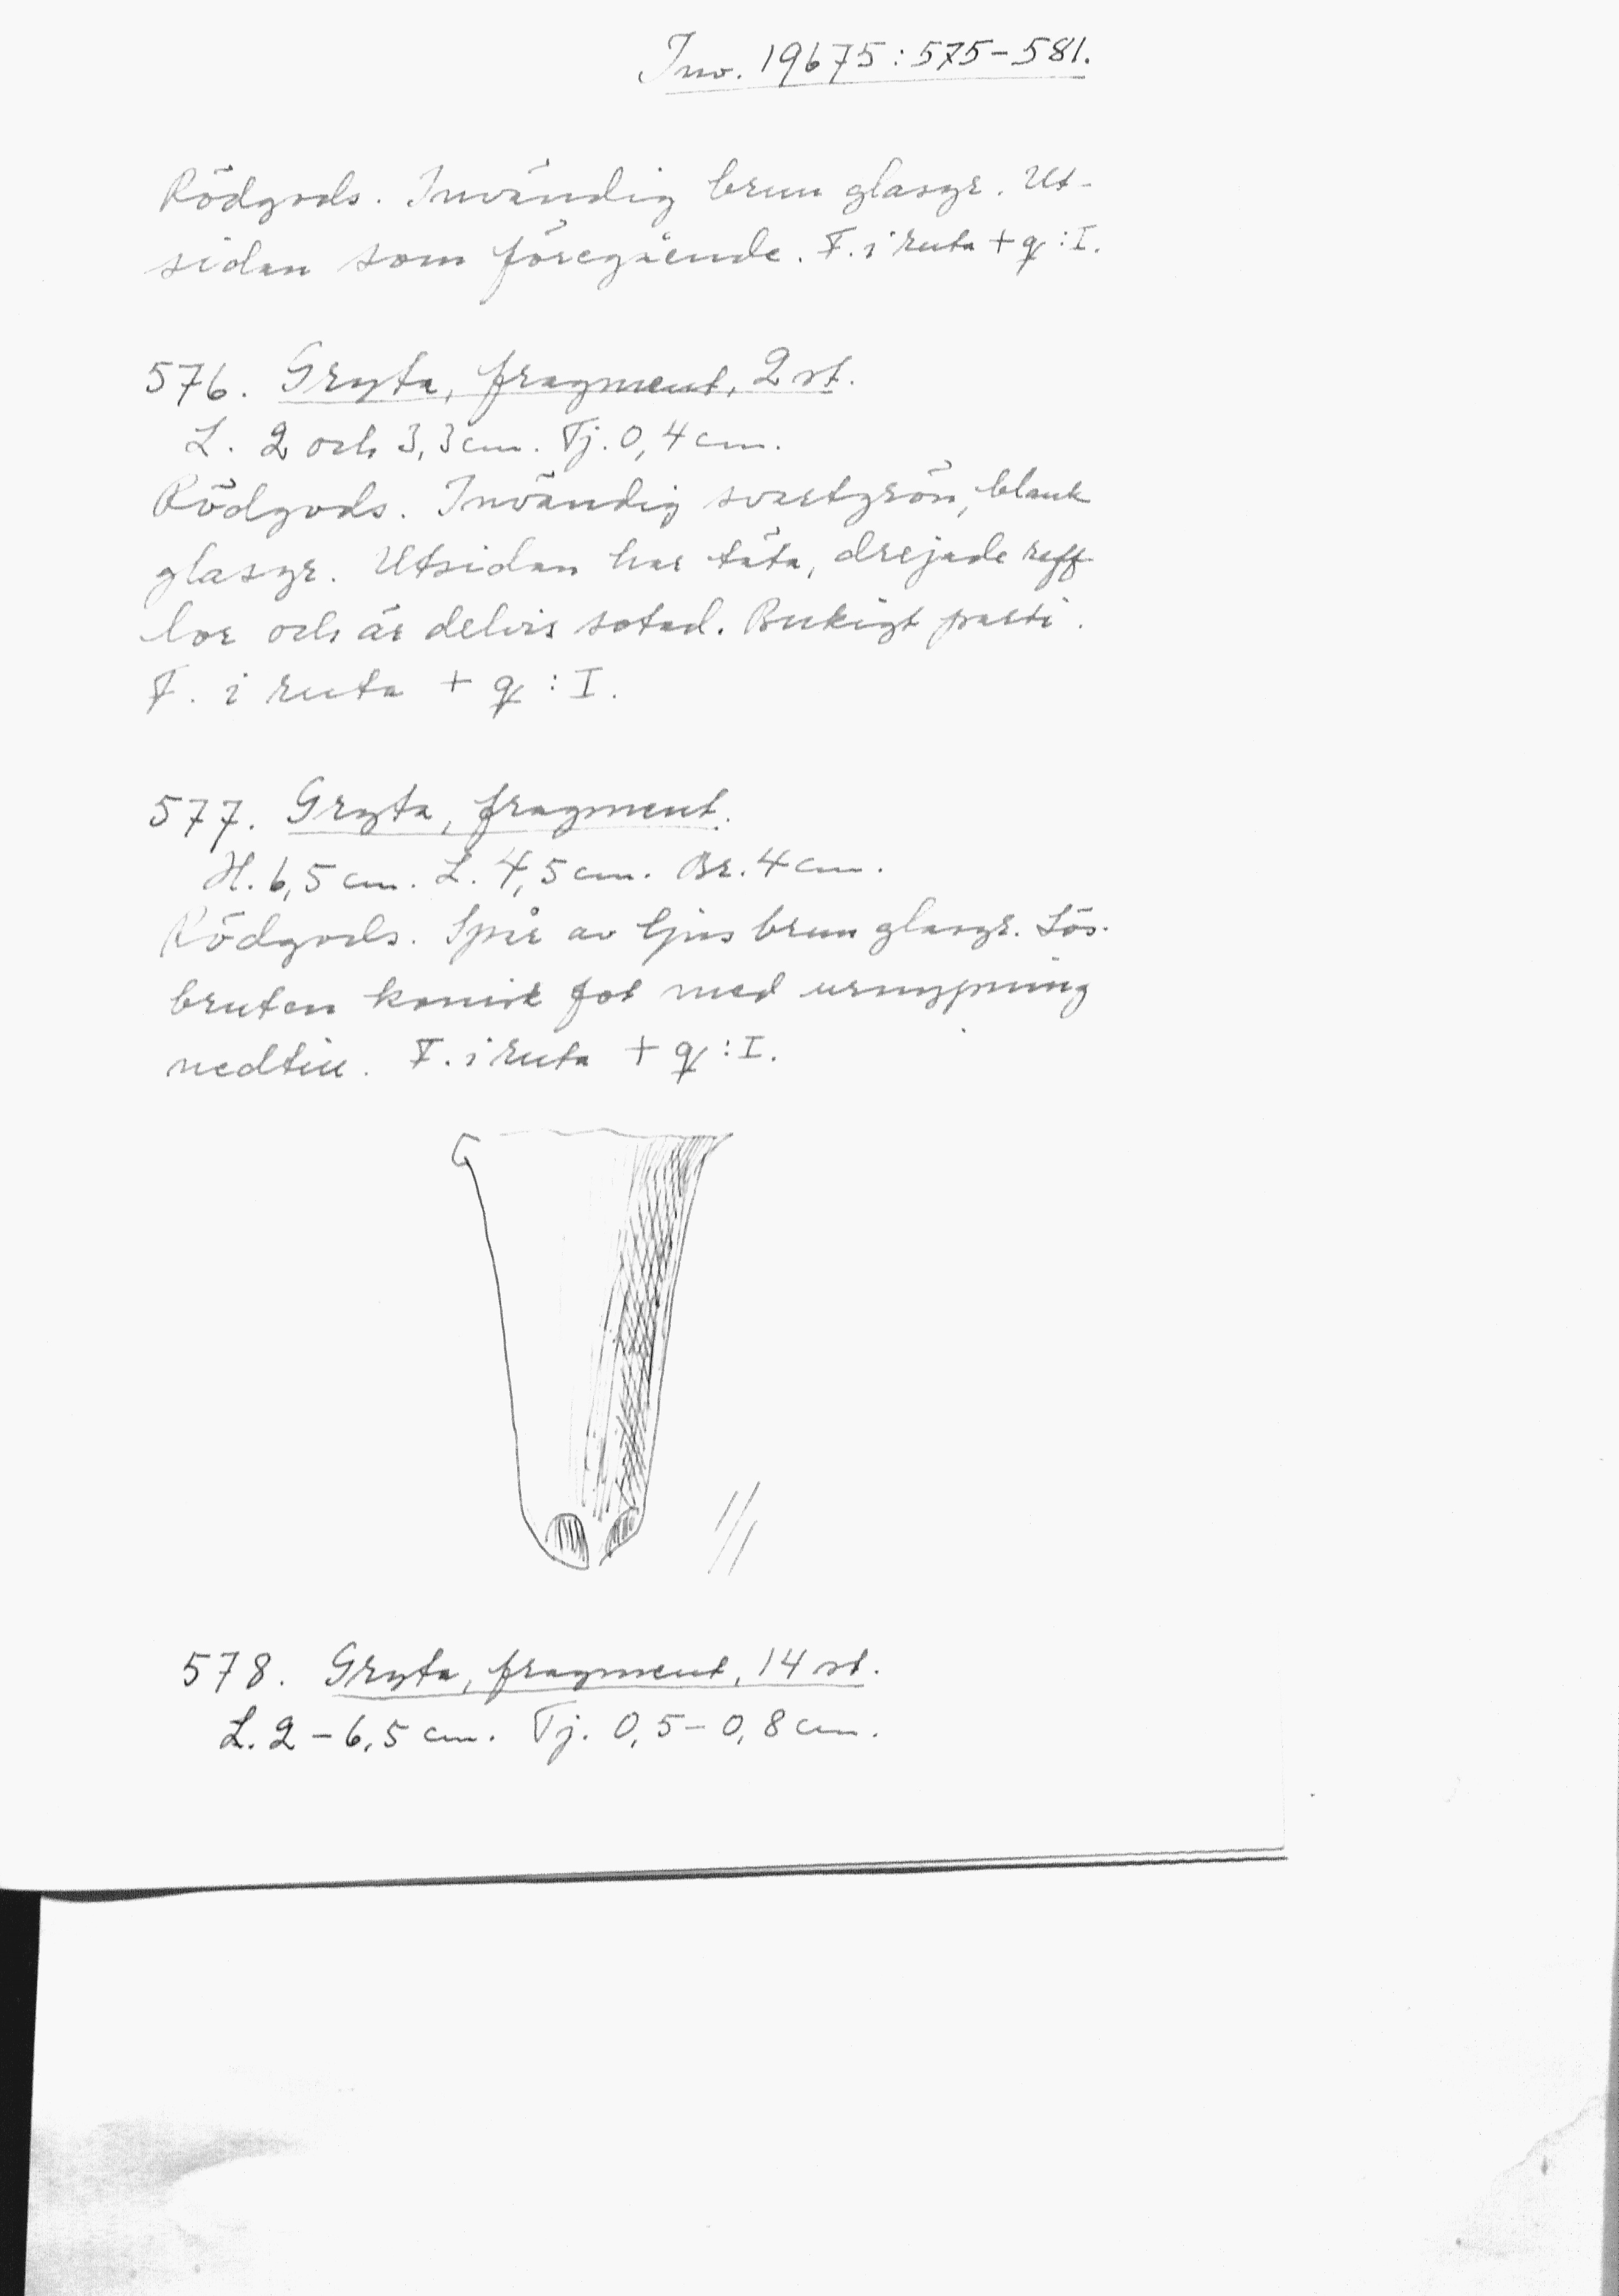 Inv. 19675:575-581.
Rödgods. Invändig brun glasyr. Ut-
sidan som föregående. F. i ruta + q:I.
576. Gryta, fragment, 2 st.
L. 2 och 3,3 cm. Tj. 0,4 cm.
Rödgods. Invändig svartgrön, blank
glasyr. Utsidan har täta, drejade reff-
lor och är delvis sotad. Bukigt parti.
F. i ruta + q:I.
577. Gryta, fragment.
H. 6,5 cm. L. 4,5 cm. Br. 4 cm.
Rödgods. Spår av ljusbrun glasyr. Lös-
bruten konisk fot med urnypning
nedtill. F. i ruta + q:I.
1/1
578. Gryta, fragment, 14 st.
L. 2-6,5 cm. Tj. 0,5-0,8 cm.